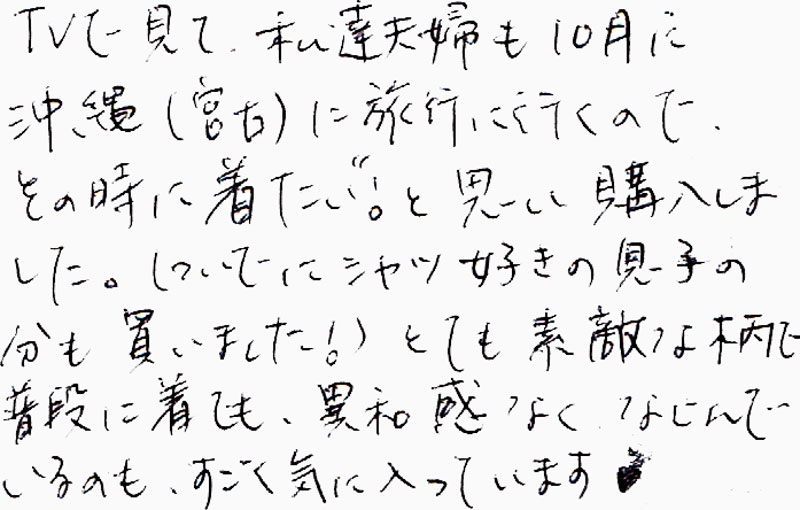 TVで見て、私達夫婦も10月に
沖縄(宮古)に旅行に行くので、
その時に着たい"!。と思い購入しま
した。(ついでにシャツ好きの息子の
分も買いました!)とても素敵な柄で
普段に着ても、異和感なくなじんで
いるのも、すごく気に入っています